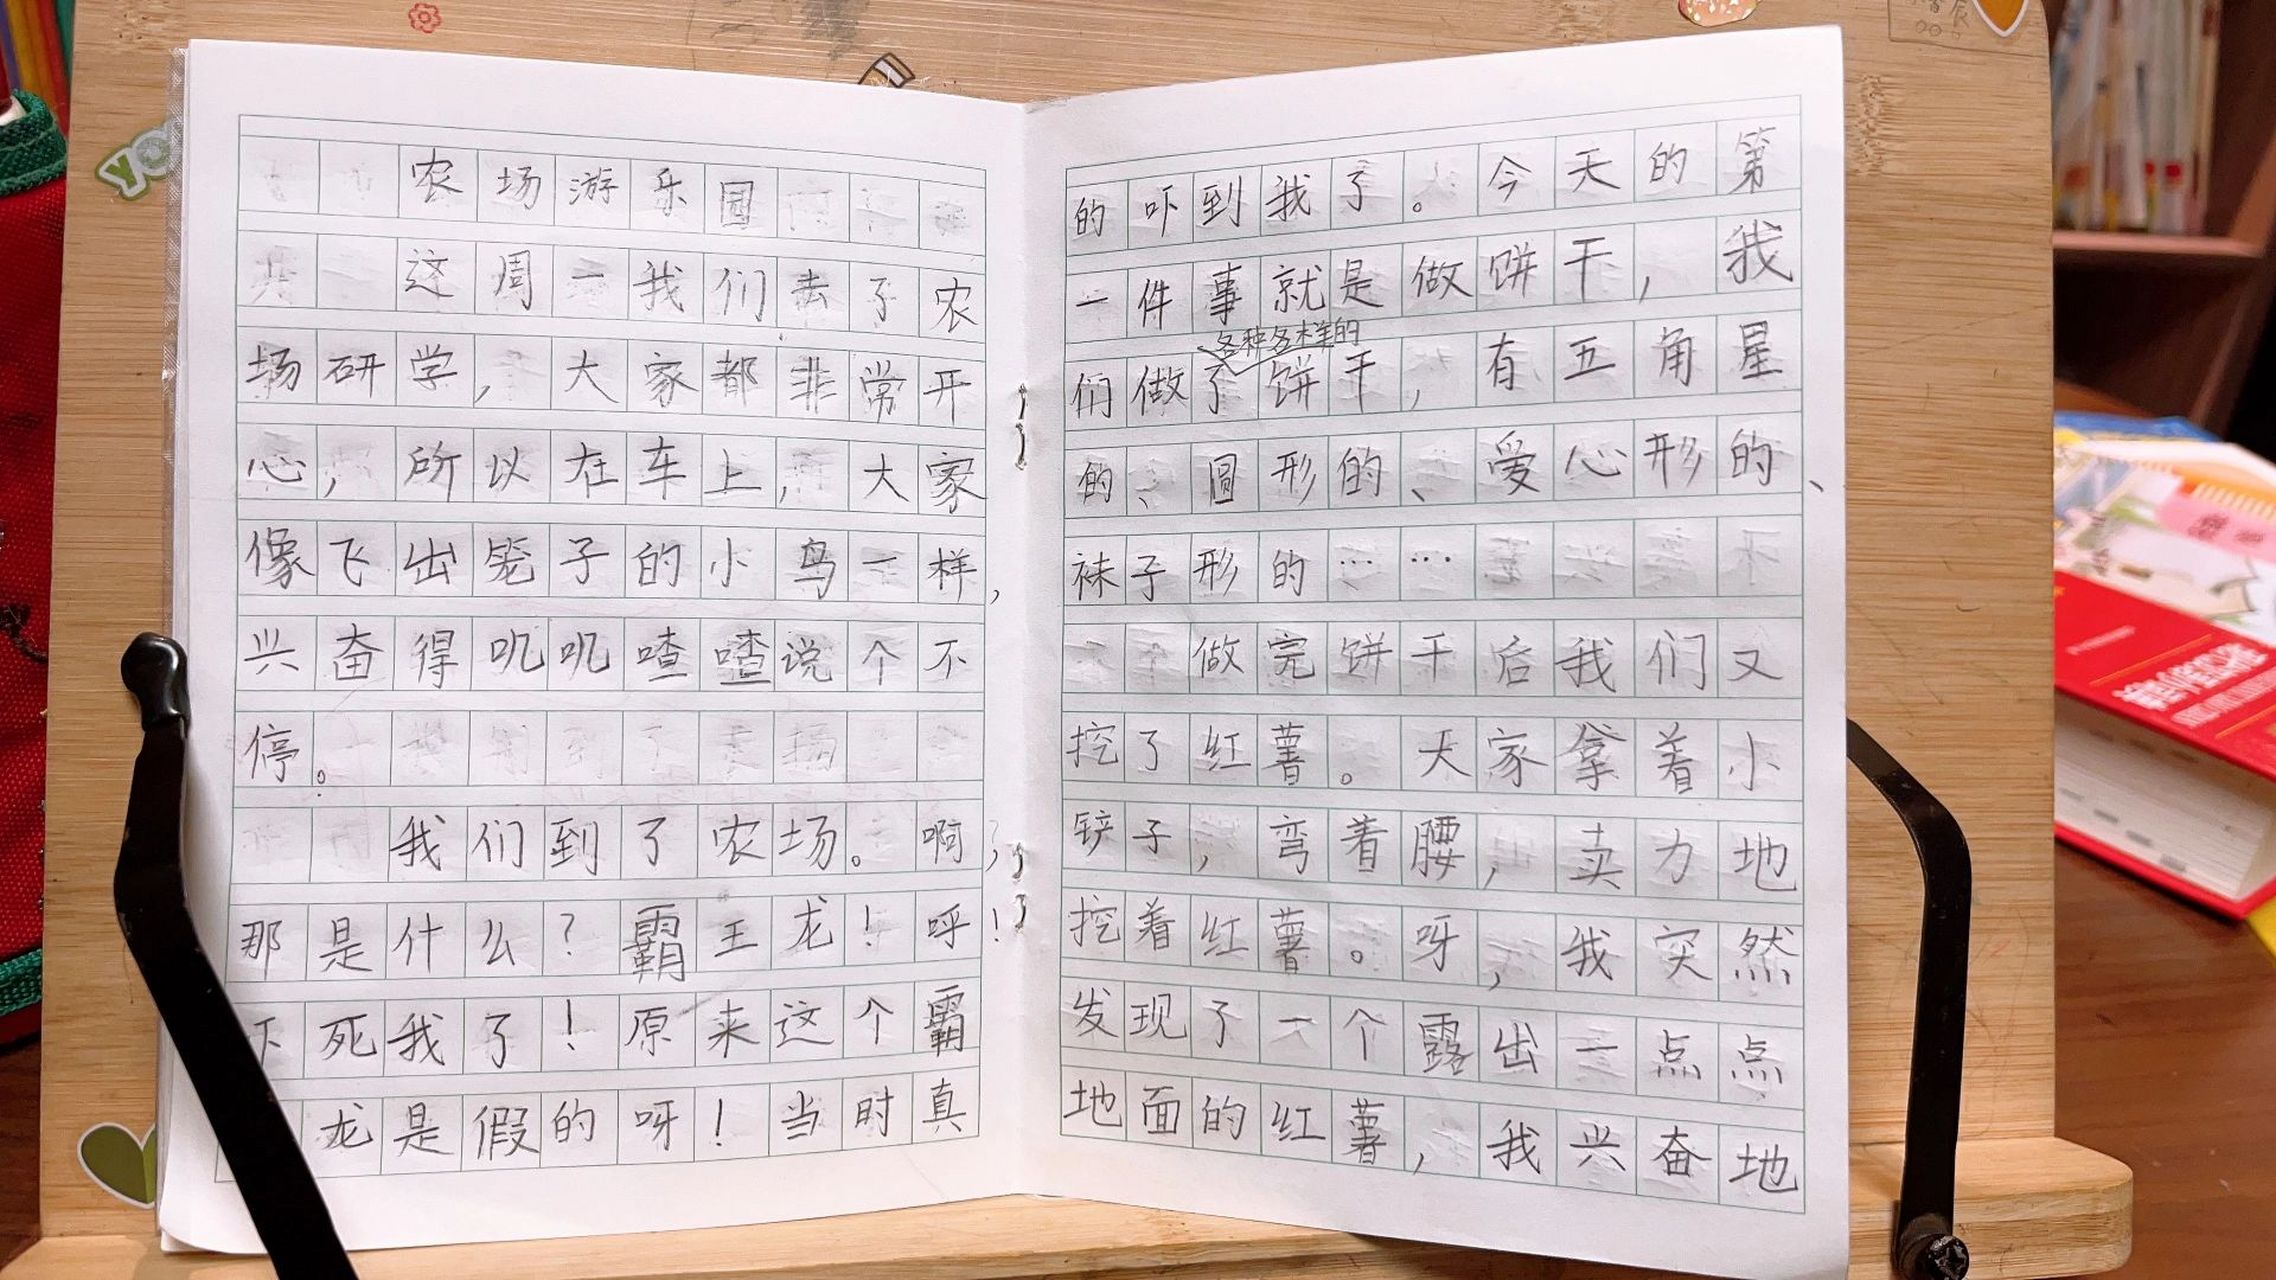 农场游乐园
这周一我们去了农
场研学，大家都非常开
心，所以在车上，大家
像飞出笼子的小鸟一样，
兴奋得叽叽喳喳说个不
停。
我们到了农场。啊，
那是什么？霸王龙！呼！
死我了！原来这个霸
龙是假的呀！当时真
的吓到我了。今天的第
一件事就是做饼干，我
各种各样的
们做了饼干，有五角星
的、圆形的、爱心形的、
袜子形的……
做完饼干后我们又
挖了红薯。大家拿着小
铲子，弯着腰，卖力地
挖着红薯。呀，我突然
发现了一个露出一点点
地面的红薯，我兴奋地